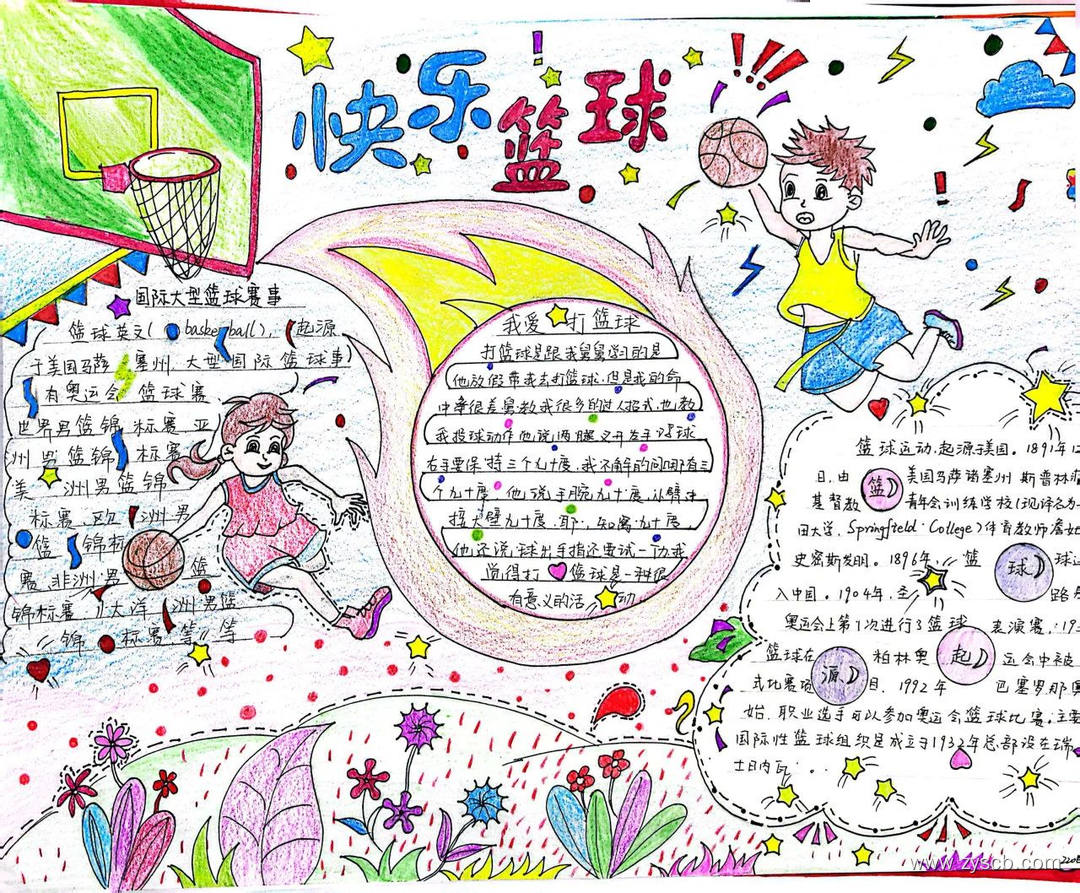 快乐篮球
国际大型篮球赛事
篮球英文(basketball),起源
于美国马萨塞州大型国际篮球赛事)
有奥运会篮球赛
世界男篮锦标赛亚
洲男篮锦标赛
美洲男篮锦
标赛.欧洲男
篮锦标
赛.非洲男篮
锦标赛大洋洲男篮
锦标赛等等
我爱打篮球
打篮球是跟我舅舅学习的是
他放假带我去打篮球.但是我的命
中率很差舅教我很多的过人招式,也教
我投球动作他说两腿叉开发手
右手要保持三个九十度.我不解的问哪有三
个九十度.他说手腕九十度.小臂中
大臂九十度.
他还说,球出手指还要试一下力我
觉得打篮球是一种很
有意义的活动
篮球运动.起源于美国。1891年12
日.由美国马萨诸塞州斯普林
基督教青年会训练学校(现译名为
田大学.Springfield·College)体育教师詹
史密斯发明。1896年.篮球运
入中国。1904年.圣路易
奥运会上第1次进行了篮球表演赛.193
篮球在柏林奥运会中被
式比赛项目.1992年巴塞罗那奥
始.职业选手可以参加奥运会篮球比赛;主要
国际性篮球组织是成立于1932年总部设在瑞
士日内瓦...
篮
球
起
源
www.zyscb.com